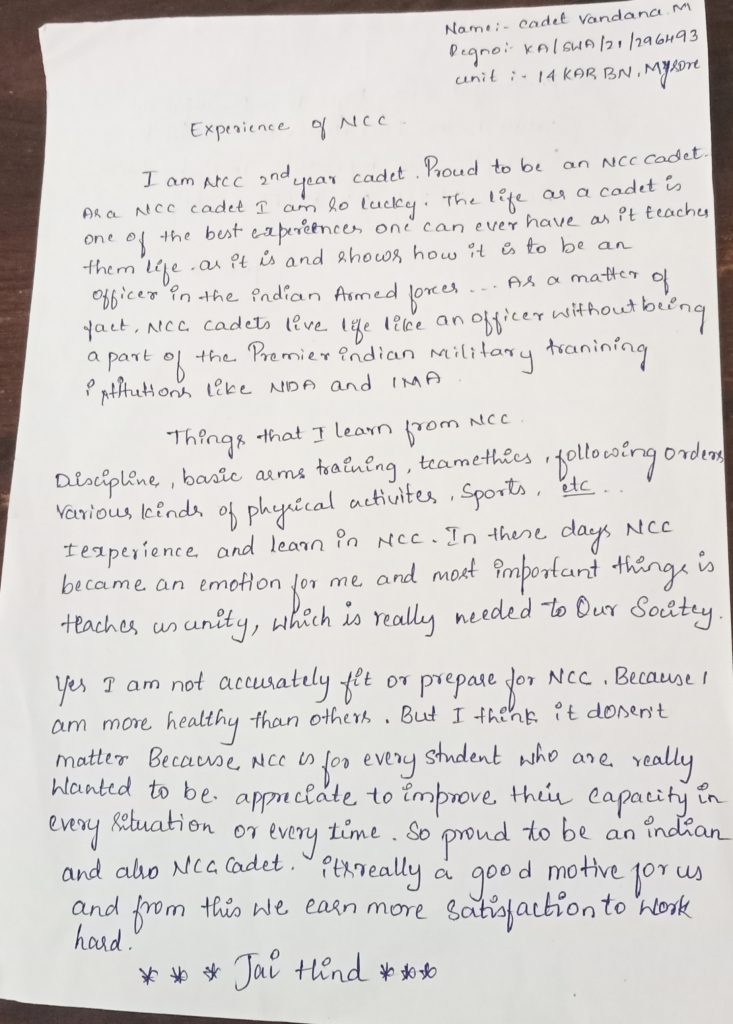 Name:- Cadet Vandana. M
Regno:- KA/SWA/21/296493
unit :- 14 KAR BN, Mysore
Experience of NCC.
I am NCC 2nd year cadet. Proud to be an NCC cadet.
As a NCC cadet I am so lucky. The life as a cadet is
one of the best expireences one can ever have as it teaches
them life. as it is and shows how it is to be an
officer in the indian Armed forces... As a matter of
fact, NCC cadets live life like an officer without being
a part of the Premier indian military tranining
like NDA and IMA
Things that I learn from NCC.
Discipline, basic arms training, teamethics, following orders
Various kinds of physical activites, Sports, etc..
Iexperience and learn in NCC. In these days NCC
became an emotion for me and most important things is
teaches us unity, which is really needed to Our Socitey.
Yes I am not accurately fit or prepare for NCC. Because I
am more healthy than others. But I think it dosen't
matter Because NCC is for every student who are really
Wanted to be. appreciate to improve their capacity in
every situation or every time. So proud to be an indian
and also NCC Cadet. its really a good motive for us
and from this we earn more satisfaction to work
hard.
* * * Jai Hind * * *